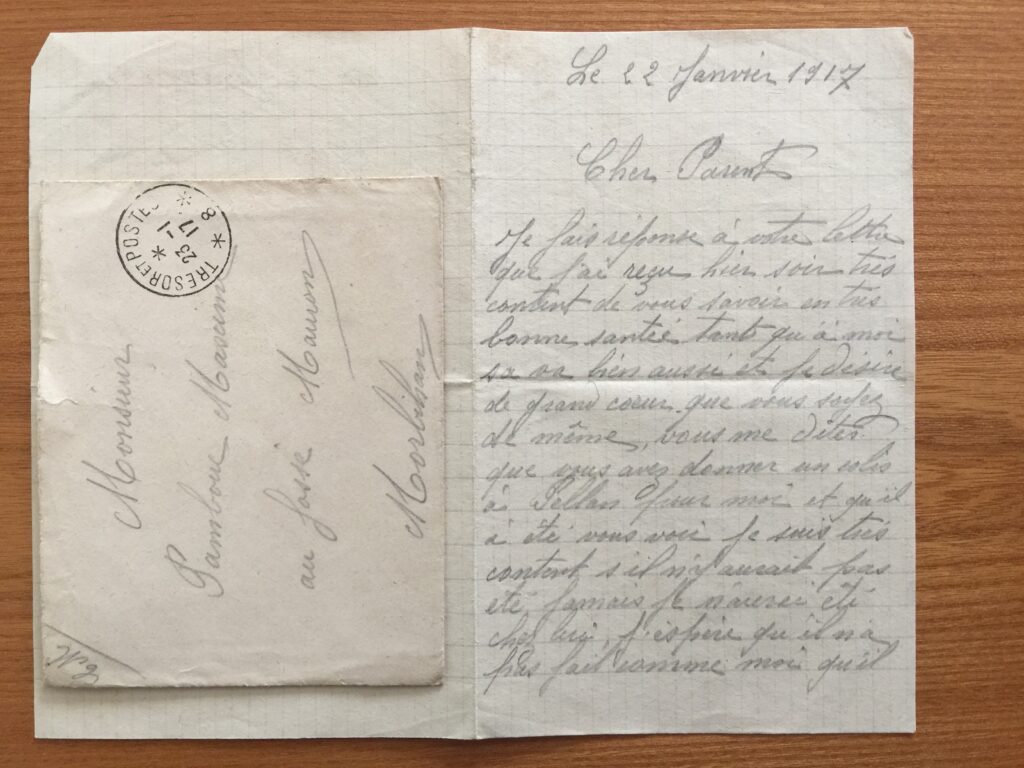 Le 22 Janvier 1917
Cher Parent
Je fais réponse à votre lettre
que j'ai reçu hier soir très
content de vous savoir en très
bonne santée tant qu'à moi
sa va bien aussi et je désire
de grand cœur que vous soyez
de même, vous me diter
que vous avez donner un colis
à Pellan pour moi et qu'il
à été vous voir je suis très
content s'il n'y aurait pas
été jamais je n'aurai été
chez lui j'espère qu'il n'a
pas fait comme moi qu'il
TRESOR ET POSTES
23-1
17
8
Monsieur
Pambour
au fossé Mauron
Morbihan